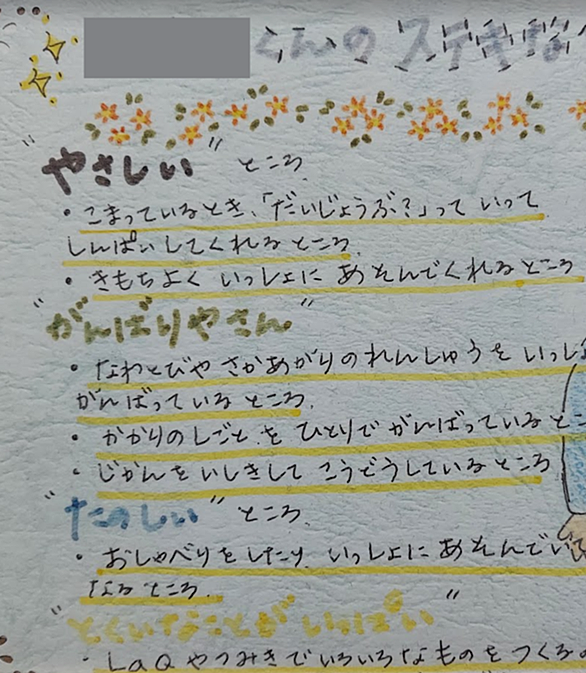 くんの ステキな
"やさしい" ところ
・こまっているとき、「だいじょうぶ?」って いって
しんぱいしてくれるところ
・きもちよく いっしょに あそんでくれるところ
"がんばりやさん"
・なわとびや さかあがりのれんしゅうを いっしょ
がんばっているところ.
・かかりのしごとを ひとりで がんばっていると
・じかんを いしきして こうどうしているところ
"たのしい" ところ.
・おしゃべりをしたり いっしょに あそんでい
なるところ.
"とくいなことが いっぱい"
・LaQやつみきでいろいろなものをつくる